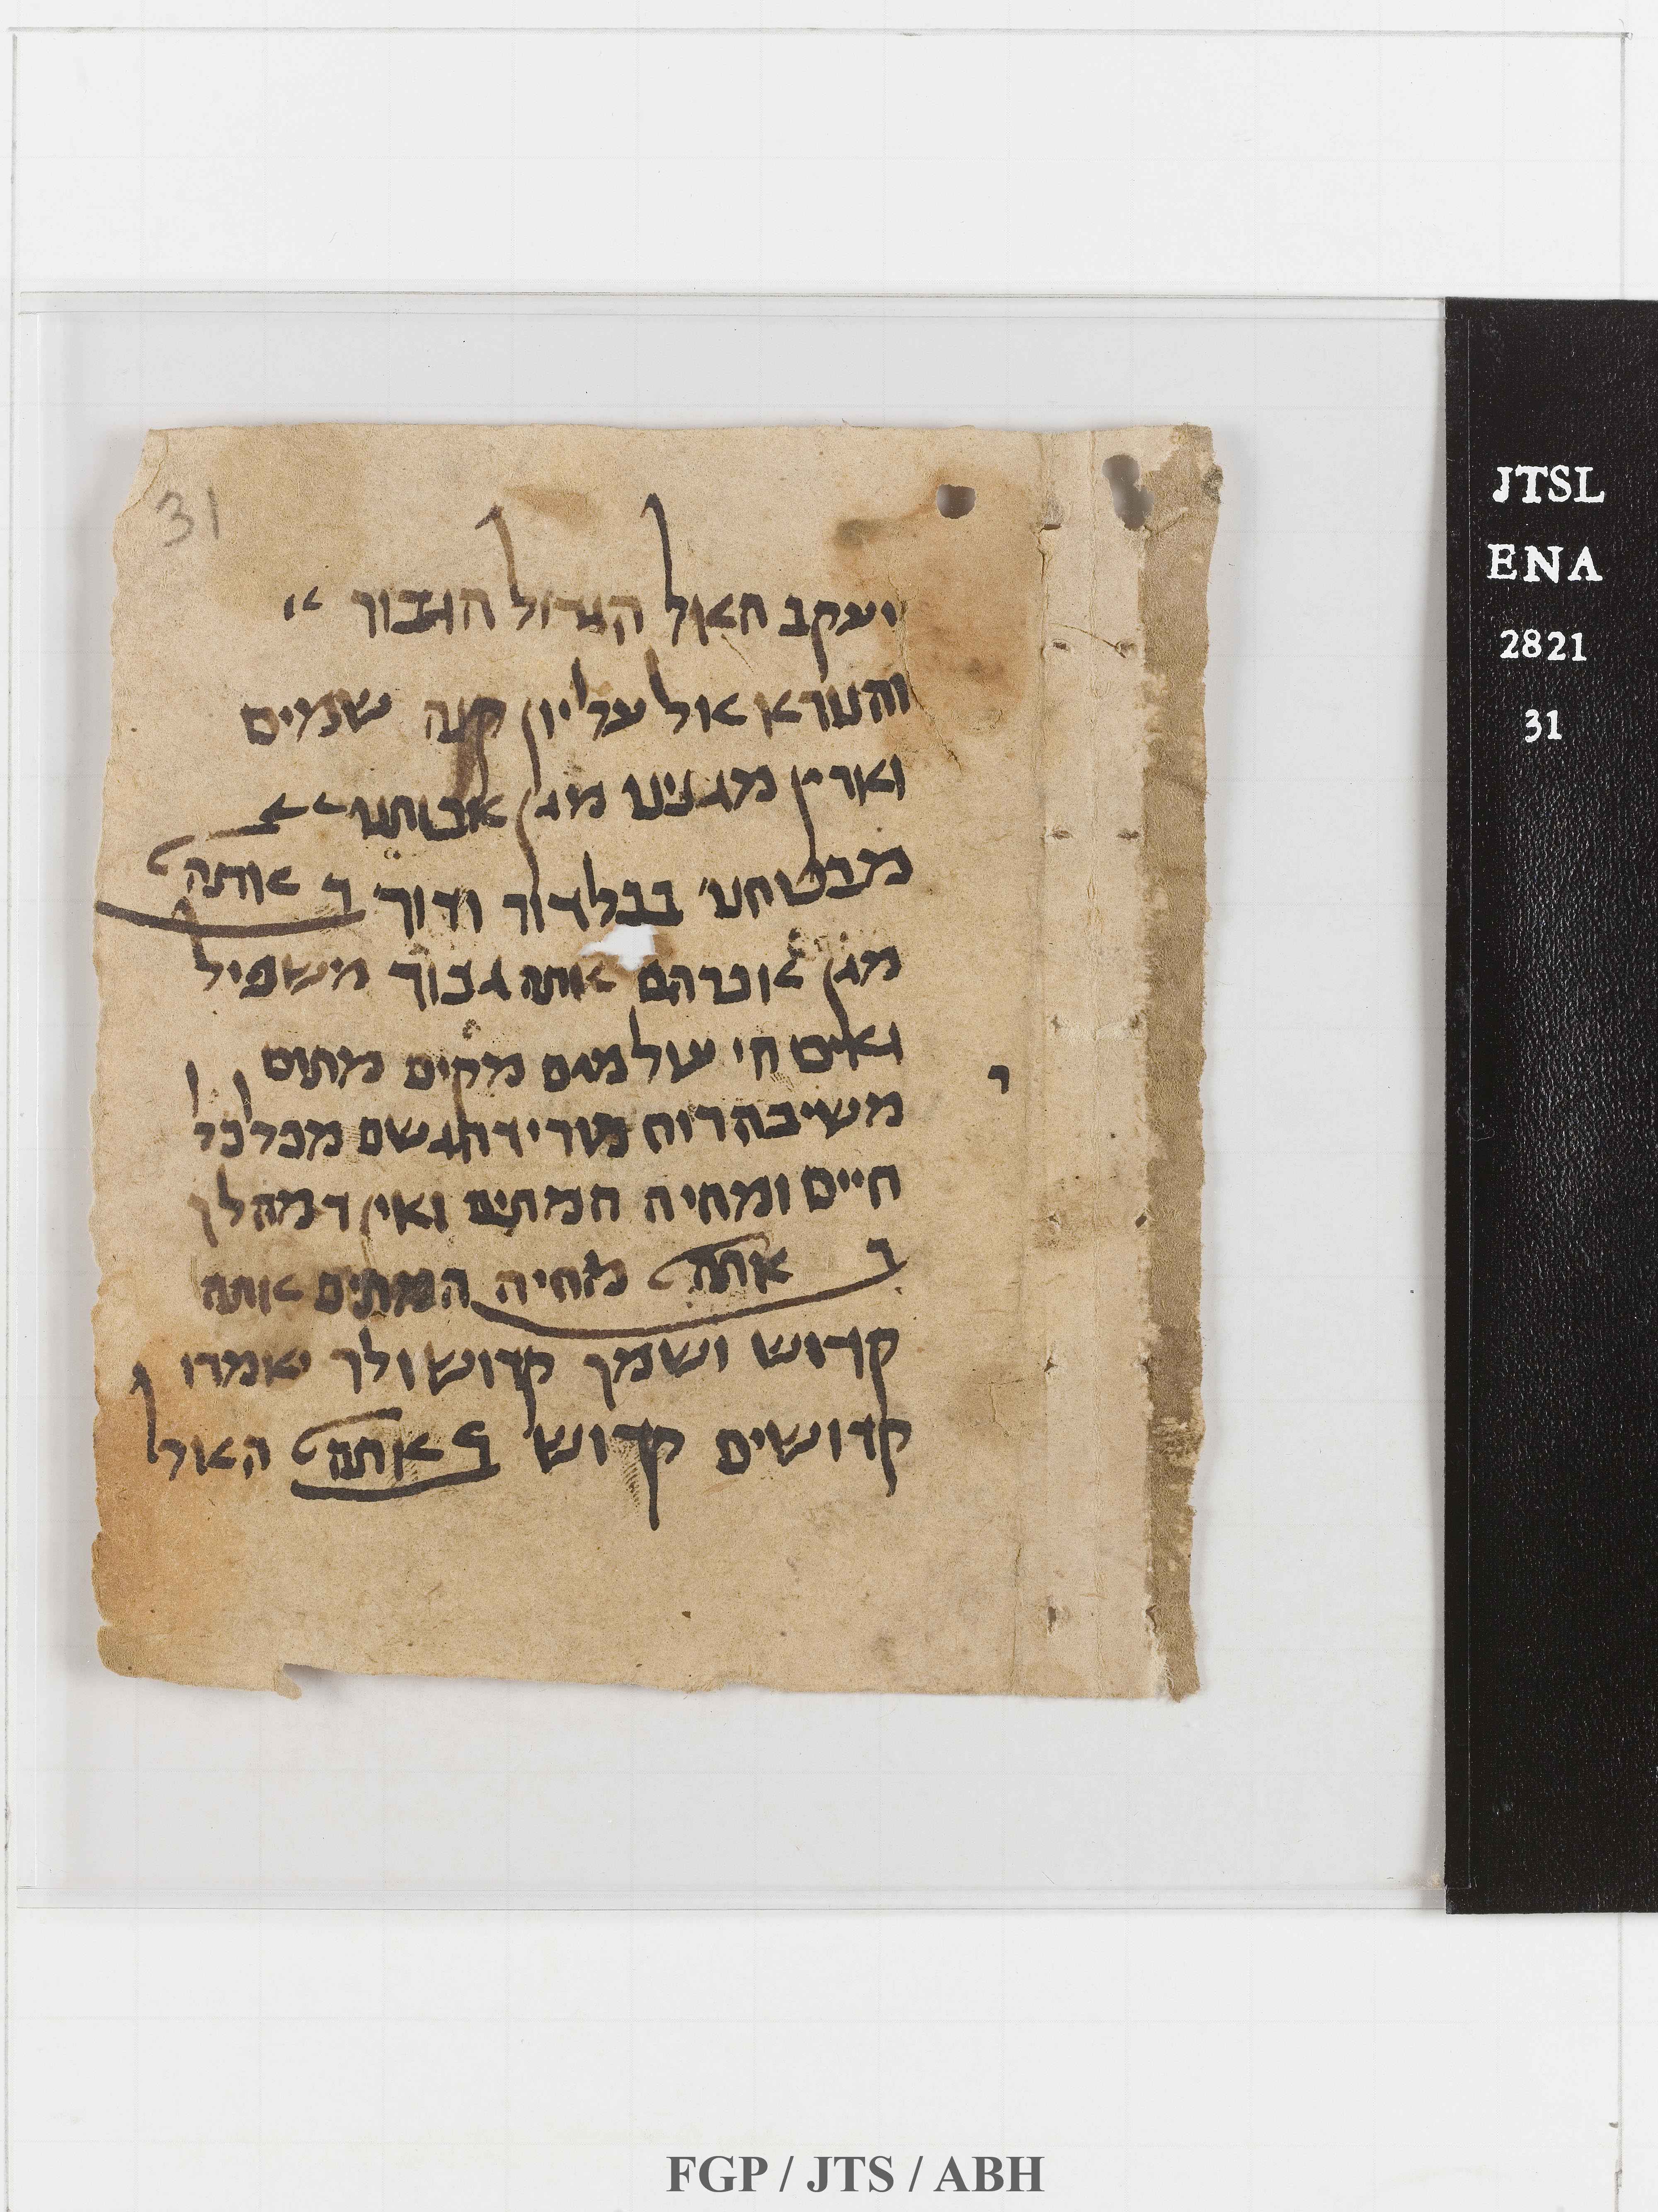 31
יעקב האל הגדול הגבור
והנורא אל עליון קנה שמים
וארץ מגנינו מגן אבותינו
מבטחנו בכל דור ודור ב אתה
מגן אברהם אתה גבור משפיל
גאים חי עולמים מקים מתים
משיב הרוח מוריד הגשם מכלכל
חיים ומחיה המתים ואין דמה לך
ב אתה מחיה המתים אתה
קדוש ושמך קדוש ולך אמרו
קדושים קדוש ב אתה האל
JTSL
ENA
2821
31
FGP / JTS / ABH